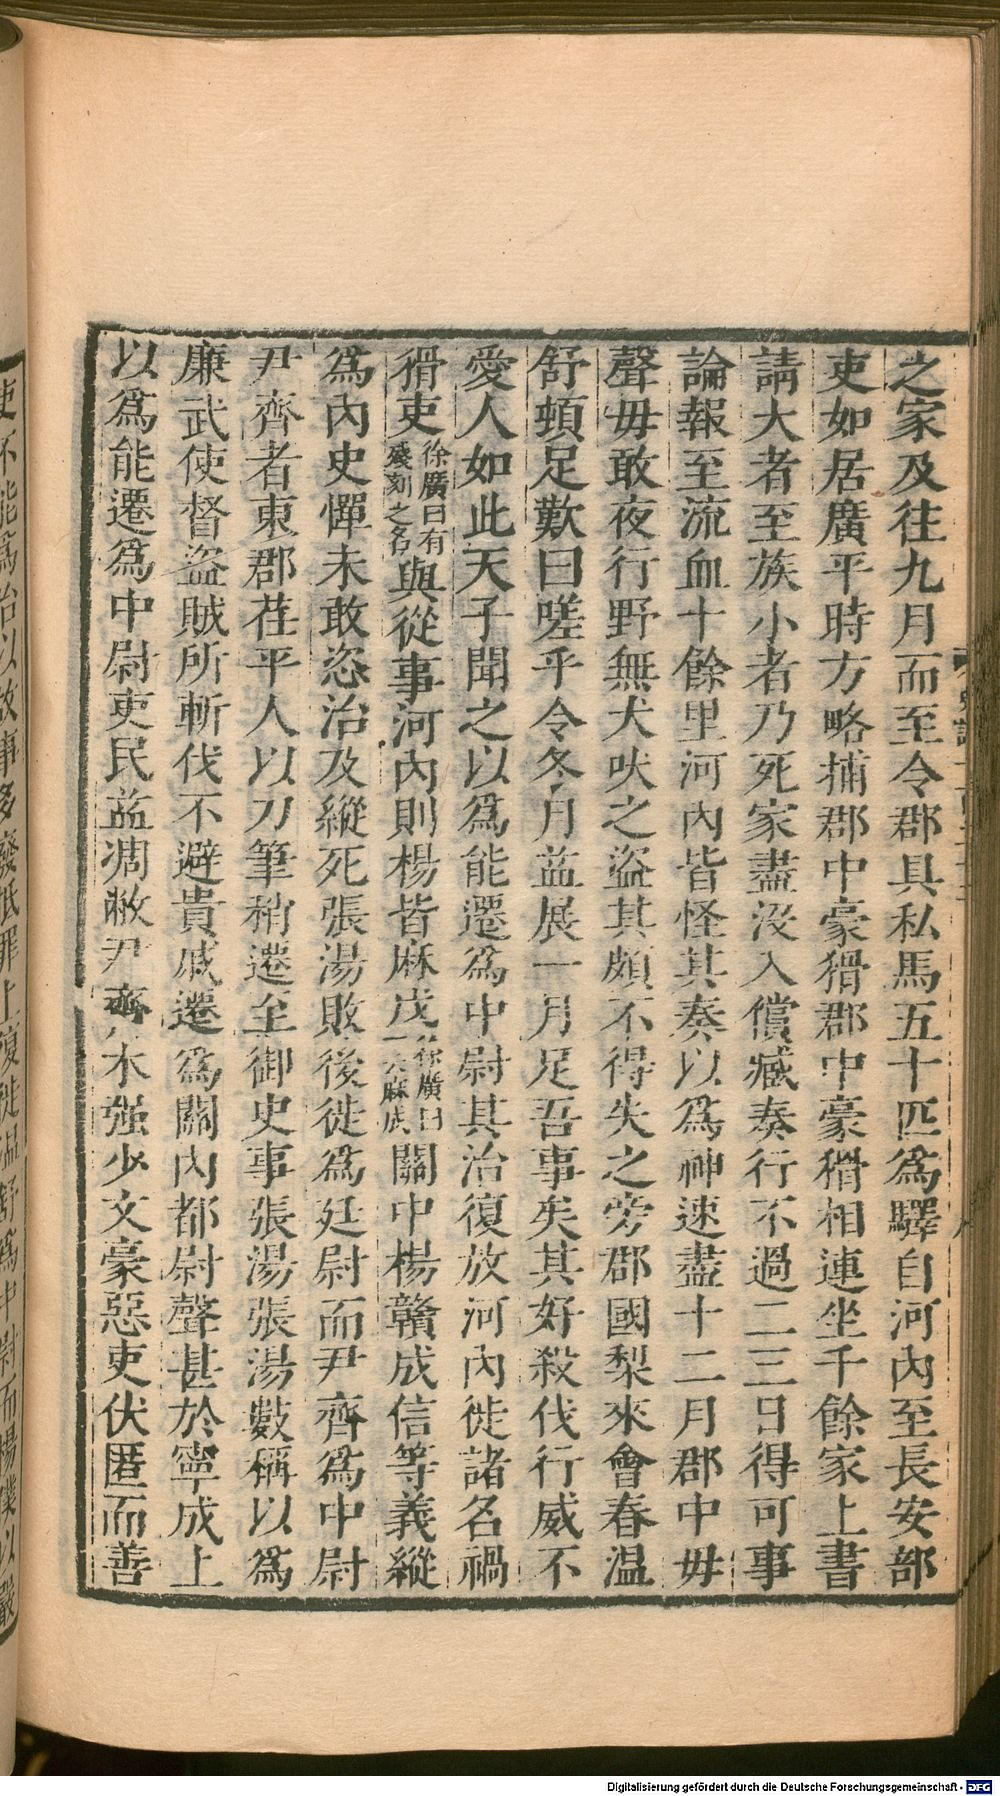 之家及往九月而至令郡具私馬五十匹爲驛自河內至長安部
吏如居廣平時方略捕郡中豪猾郡中豪猾相連坐千餘家上書
請大者至族小者乃死家盡没入償臧奏行不過二三日得可事
論報至流血十餘里河內皆怪其奏以爲神速盡十二月郡中毋
聲毋敢夜行野無犬吠之盜其頗不得失之旁郡國梨來會春温
舒頓足歎曰嗟乎令冬月益展一月足吾事矣其好殺伐行威不
愛人如此天子聞之以爲能遷爲中尉其治復放河內徙諸名禍
猾吏徐廣曰有殘刻之名與從事河內則楊皆麻戊徐廣曰一云麻成關中楊贛成信等義縱
爲內史憚未敢恣治及縱死張湯敗後徙爲廷尉而尹齊爲中尉
尹齊者東郡茌平人以刀筆稍遷至御史事張湯張湯數稱以爲
廉武使督盜賊所斬伐不避貴戚遷爲關內都尉聲甚於寧成上
以爲能遷爲中尉吏民益凋敝尹齊木强少文豪惡吏伏匿而善
吏不能爲治以故事多廢抵罪上復徙温舒爲中尉而楊僕以嚴
Digitalisierung gefördert durch die Deutsche Forschungsgemeinschaft - DFG